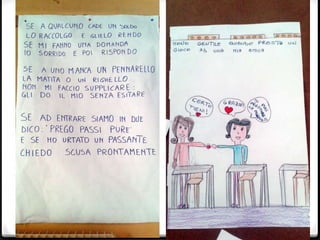 SE A QUALCUNO CADE UN SOLDO
LO RACCOLGO E GLIELO RENDO
SE MI FANNO UNA DOMANDA
IO SORRIDO E POI RISPONDO
SE A UNO MANCA UN PENNARELLO
LA MATITA O UN RIGHELLO
NON MI FACCIO SUPPLICARE:
GLI DO IL MIO SENZA ESITARE
SE AD ENTRARE SIAMO IN DUE
DICO: "PREGO PASSI PURE"
E SE HO URTATO UN PASSANTE
CHIEDO SCUSA PRONTAMENTE
SONO GENTILE QUANDO PRESTO UN
GIOCO AD UNA MIA AMICA
CERTO
TIENI!
GRAZIE!